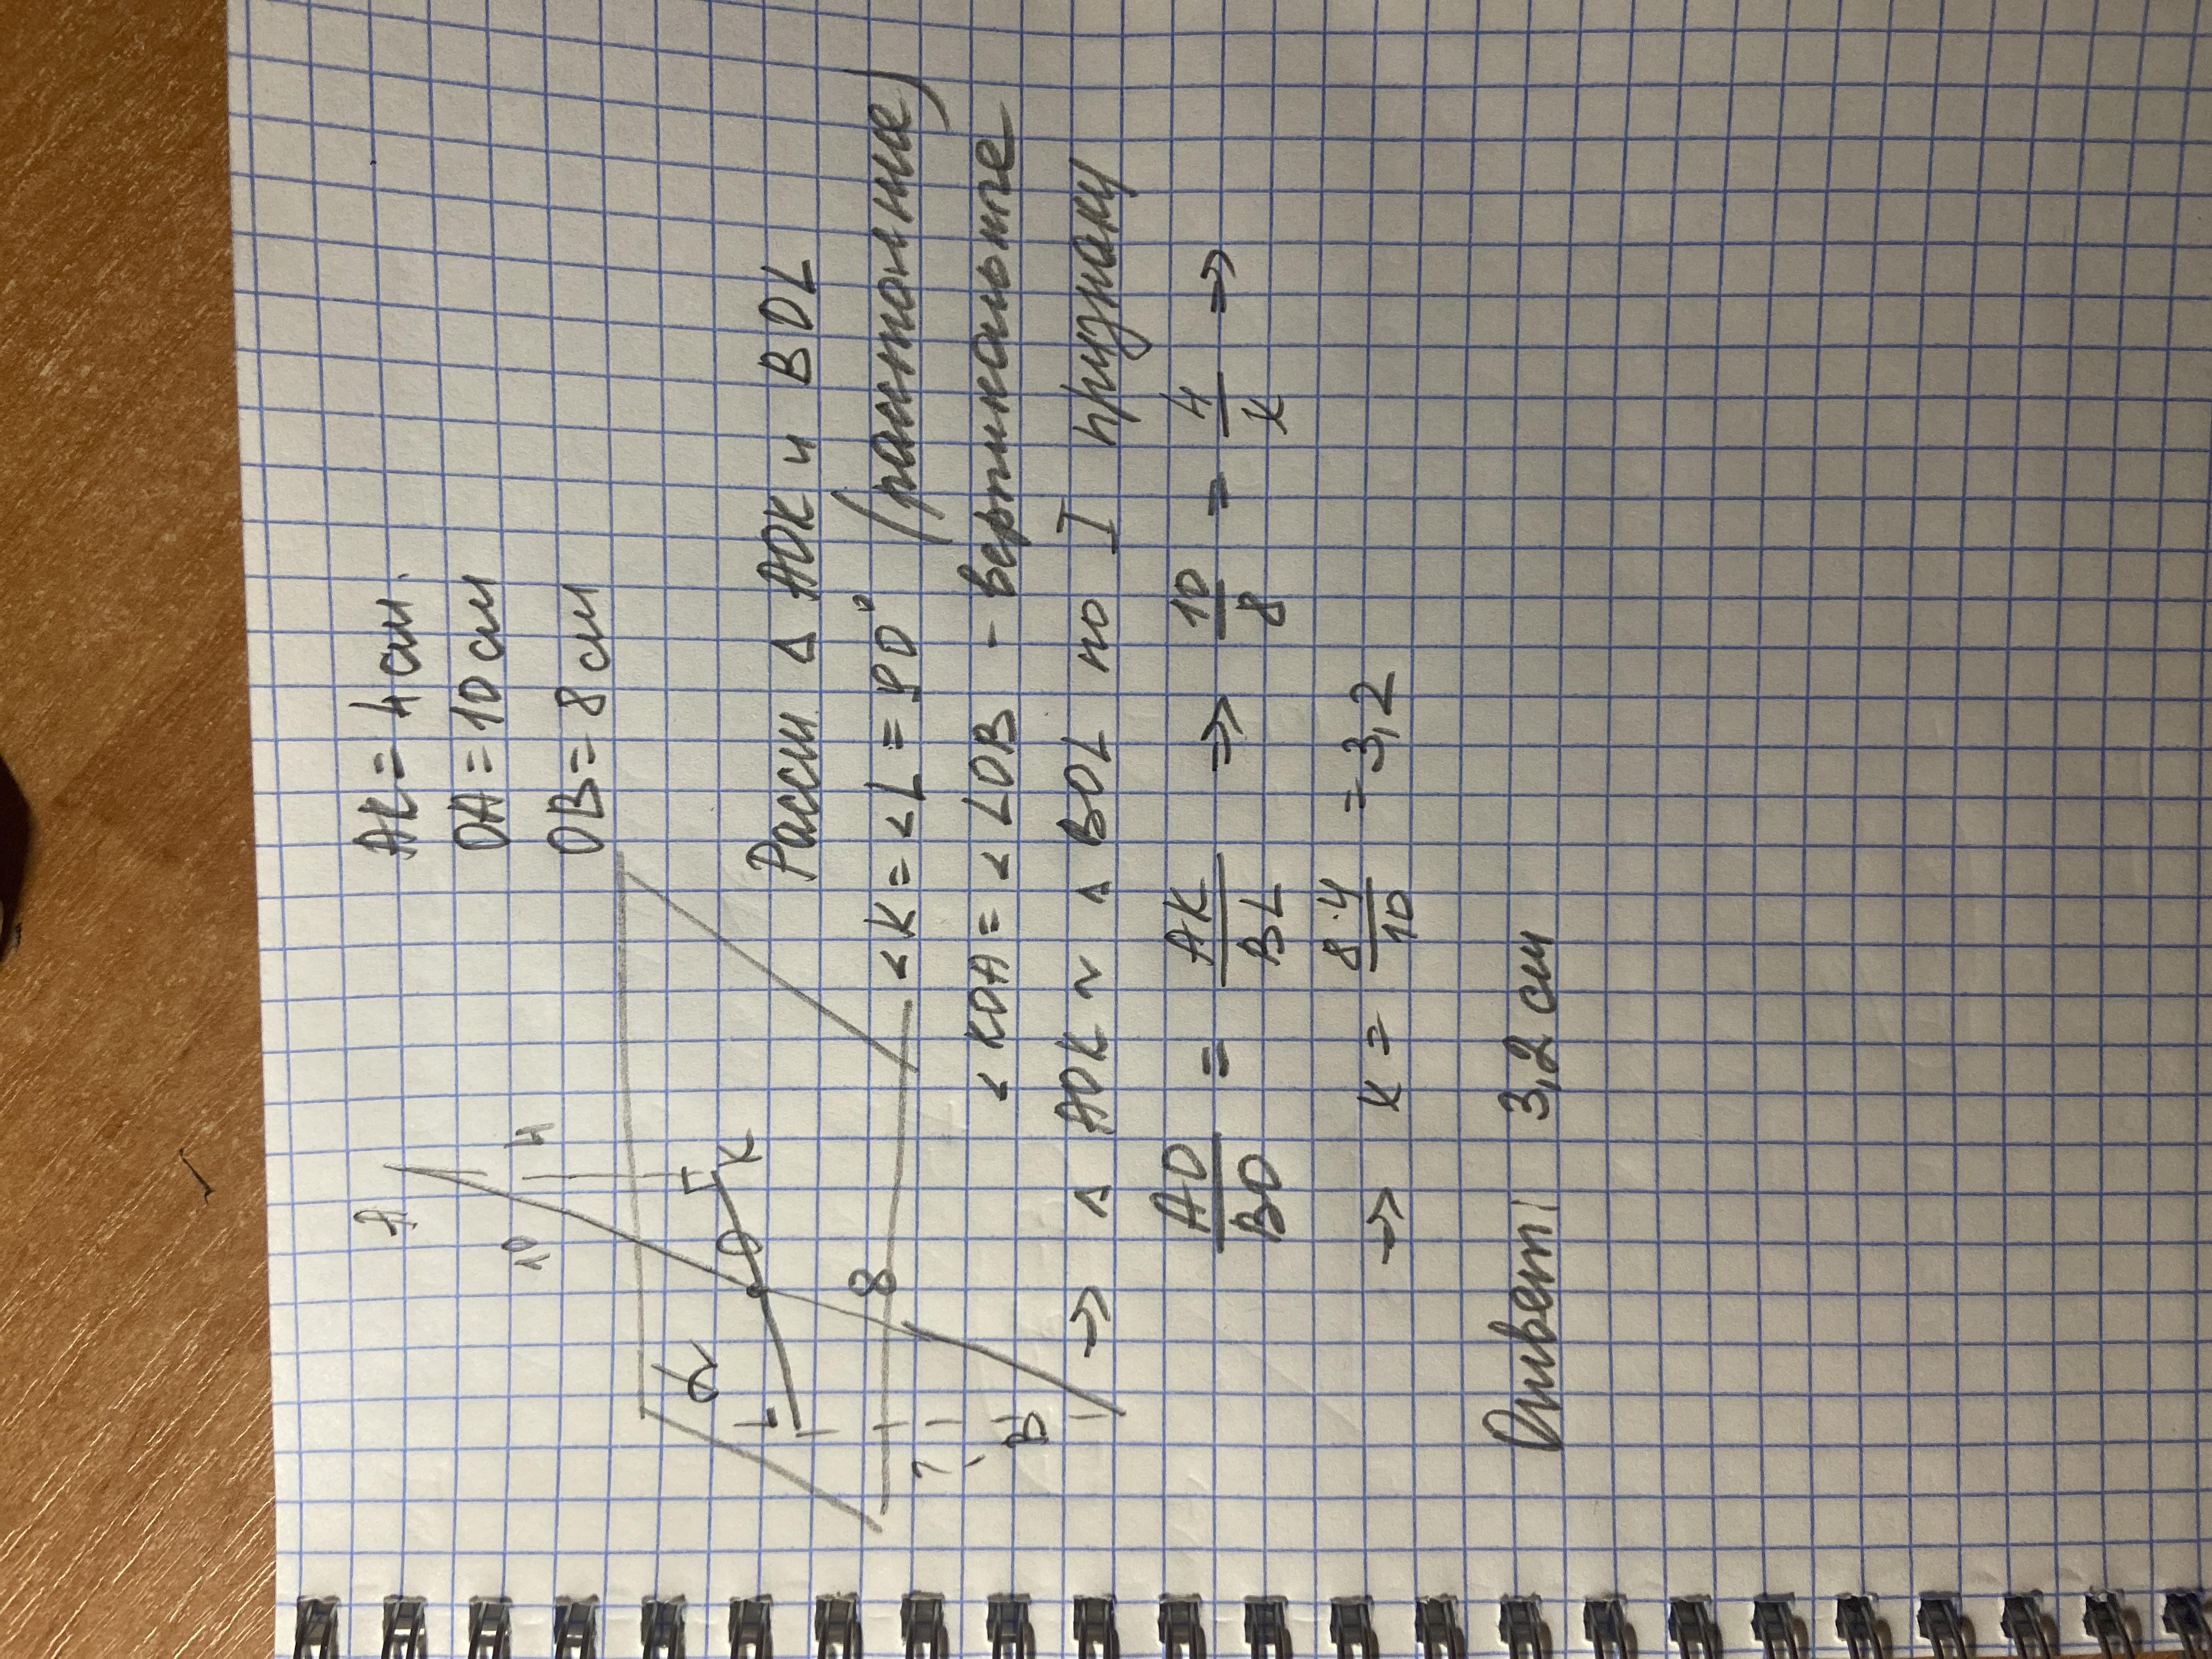 AK = 4 см.
OA = 10 см
OB = 8 см
A
10
4
α
L
O
K
8
?
B
Рассм Δ AOK и BOL
< K = < L = 90° (расстояние)
< KOA = < LOB - вертикальные
=> Δ AOK ~ Δ BOL по I признаку
AO/BO = AK/BL => 10/8 = 4/x =>
=> x = 8·4/10 = 3,2
Ответ: 3,2 см